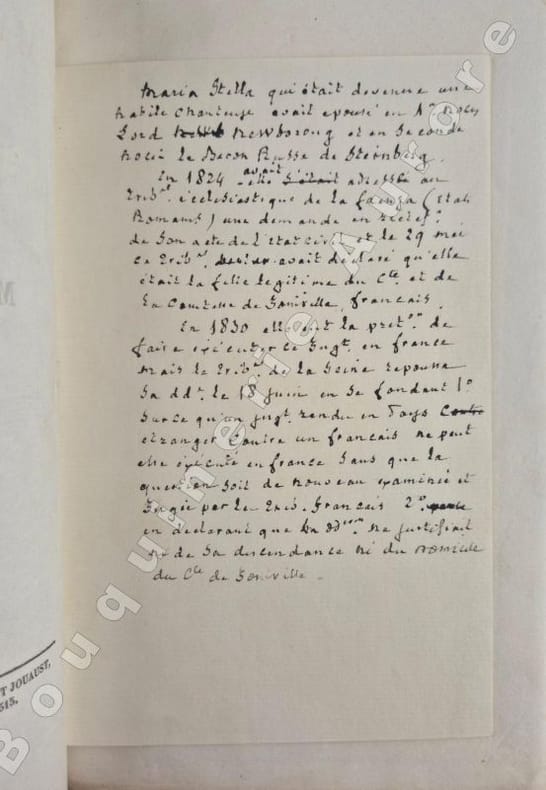 Maria Stella qui était devenue une
habile chanteuse avait epousé en 1es noces
Lord Newboroug et en seconde
noces le Baron Russe de Sternberg.
En 1824 avait adressé au
Tribal ecclesiastique de la faenza (Etats
Romains) une demande en rectifon
de son acte de l'etat civil et le 29 mai
ce Tribal avait declaré qu'elle
était la fille legitime du Cte et de
la Comtesse de Joinville, français.
En 1830 elle eut la preton de
faire executer ce Jugt en france
mais le Tribal de la Seine repoussa
sa dde le 18 juin en se fondant 1o
sur ce qu'un jugt rendu en Pays
etranger contre un francais ne peut
etre éxécuté en france sans que la
question soit de nouveau examinée et
Jugée par les Trib. français 2o
en declarant que la ne justifiait
ni de sa descendance ni du domicile
du Cte de Joinville.
T JOUAUST,
515.
Bouquinerie Aurore
M